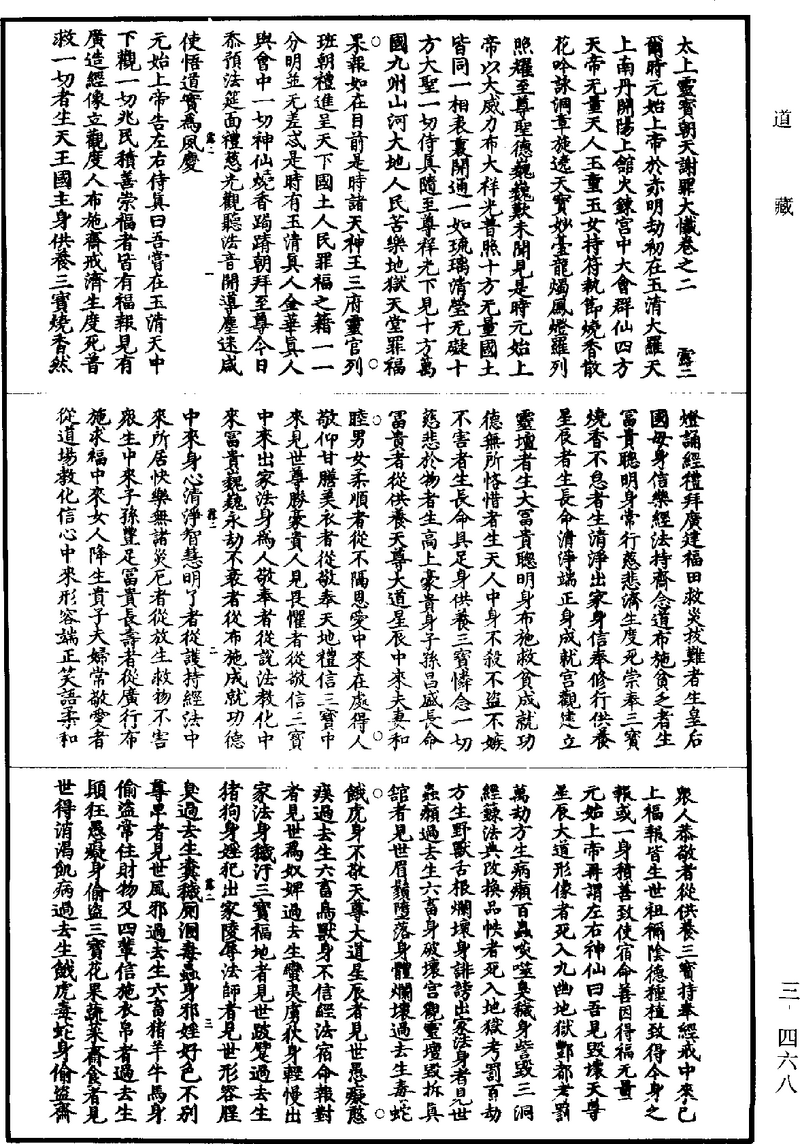 道藏
太上靈寶朝天謝罪大懺卷之二　露二
爾時元始上帝於赤明劫初在玉清大羅天
上南丹開陽上館火鍊宮中大會群仙四方
天帝无量天人玉童玉女持符執節燒香散
花吟詠洞章旋遶天寶妙臺龍燭鳳燈羅列
照耀至尊聖德巍巍歎未聞見是時元始上
帝以大威力布大祥光普照十方无量國土
皆同一相表裏開通一如琉璃清瑩无礙十
方大聖一切侍真隨至尊祥光下見十方萬
國九州山河大地人民苦樂地獄天堂罪福
果報如在目前是時諸天神王三府靈官列
班朝禮進呈天下國土人民罪福之籍一一
分明並无差忒是時有玉清真人金華真人
與會中一切神仙燒香躅躋朝拜至尊今日
忝預法筵面禮慈光觀聽法音開導塵迷咸
使悟道實為風慶
露二　一
元始上帝告左右侍真曰吾嘗在玉清天中
下觀一切兆民積善崇福者皆有福報見有
廣造經像立觀度人布施齋戒濟生度死普
救一切者生天王國主身供養三寶燒香然
燈誦經禮拜廣建福田救災拔難者生皇后
國母身信樂經法持齋念道布施貧乏者生
冨貴聰明身常行慈悲濟生度死崇奉三寶
燒香不怠者生清淨出家身信奉修行供養
星辰者生長命清淨端正身成就宮觀建立
靈壇者生大冨貴聰明身布施救貧成就功
德無所悋惜者生天人中身不殺不盜不嫉
不害者生長命具足身供養三寶憐念一切
慈悲於物者生高上豪貴身子孫昌盛長命
冨貴者從供養天尊大道星辰中來夫妻和
睦男女柔順者從不隔恩愛中來在處得人
敬仰甘膳美衣者從敬奉天地禮信三寶中
來見世尊勝豪貴人見畏懼者從敬信三寶
中來出家法身為人敬奉者從說法教化中
來冨貴巍巍永劫不衰者從布施成就功德
中來身心清淨智慧明了者從護持經法中
露二　二
來所居快樂無諸災厄者從放生救物不害
衆生中來子孫豐足冨貴長壽者從廣行布
施求福中來女人降生貴子夫婦常敬愛者
從道場教化信心中來形容端正笑語柔和
衆人恭敬者從供養三寶持奉經戒中來已
上福報皆生世祖稱陰德種植致得今身之
報或一身積善致使宿命善因得福无量
元始上帝再謂左右神仙曰吾見毀壞天尊
星辰大道形像者死入九幽地獄酆都考罰
萬劫方生病癩百蟲唼噬臭穢身訾毀三洞
經籙法典改換品帙者死入地獄考罰百劫
方生野獸舌根爛壞身誹謗出家法身者見世
蟲癩過去生六畜身破壞宮觀靈壇毀拆真
舘者見世眉鬚墮落身體爛壞過去生毒蛇
餓虎身不敬天尊大道星辰者見世愚癡憨
瘓過去生六畜鳥獸身不信經法宿命報對
者見世為奴婢過去生蠻夷虜狄身輕慢出
家法身穢汙三寶福地者見世跛躄過去生
猪狗身婬犯出家陵辱法師者見世形容腥
臭過去生糞穢厠溷毒蟲身邪婬好色不別
露二　三
尊卑者見世風邪過去生六畜猪羊牛馬身
偷盜常住財物及四輩信施衣帛者過去生
顛狂愚癡身偷盜三寶花果蔬菜齋食者見
世得消渴飢病過去生餓虎毒蛇身偷盜齋
三-四六八